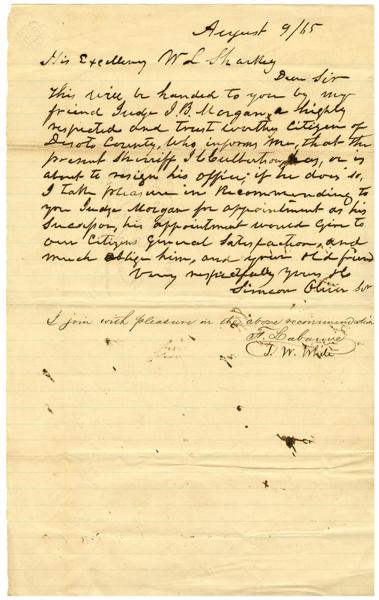 August 9/65
His Excellency W L Sharkey
Dear Sir
This will be handed to you by my
friend Judge J. B. Morgan, a highly
respected and trust worthy Citizen of
Desoto County, who informs me, that the
present Sheriff, has, or is
about to resign his office; if he does so,
I take pleasure in Recommending to
you Judge Morgan for appointment as his
Successor, his appointment would give to
our Citizens General Satisfaction, and
much oblige him, and your old friend
Very respectfully yours
Simeon Oliver Sr
I join with pleasure in the above recommendation
F. Labauve
T. W. White